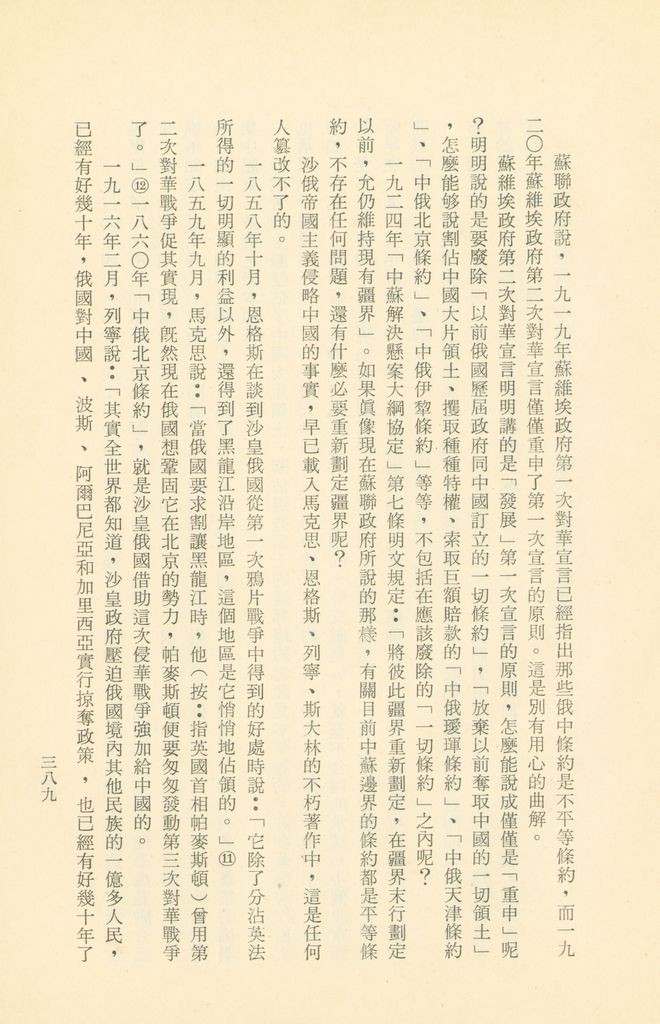 蘇聯政府說，一九一九年蘇維埃政府第一次對華宣言已經指出那些俄中條約是不平等條約，而一九
二〇年蘇維埃政府第二次對華宣言僅僅重申了第一次宣言的原則。這是別有用心的曲解。
蘇維埃政府第二次對華宣言明明講的是「發展」第一次宣言的原則，怎麼能說成僅僅是「重申」呢
？明明說的是要廢除「以前俄國歷屆政府同中國訂立的一切條約」，「放棄以前奪取中國的一切領土」
，怎麼能够說割佔中國大片領土、攫取種種特權、索取巨額賠款的「中俄璦琿條約」、「中俄天津條約
」、「中俄北京條約」、「中俄伊犂條約」等等，不包括在應該廢除的「一切條約」之內呢？
一九二四年「中蘇解決懸案大綱協定」第七條明文規定：「將彼此疆界重新劃定，在疆界末行劃定
以前，允仍維持現有疆界」。如果眞像現在蘇聯政府所說的那樣，有關目前中蘇邊界的條約都是平等條
約，不存在任何問題，還有什麼必要重新劃定疆界呢？
沙俄帝國主義侵略中國的事實，早已載入馬克思、恩格斯、列寧、斯大林的不朽著作中，這是任何
人篡改不了的。
一八五八年十月，恩格斯在談到沙皇俄國從第一次鴉片戰爭中得到的好處時說：「它除了分沾英法
所得的一切明顯的利益以外，還得到了黑龍江沿岸地區，這個地區是它悄悄地佔領的。」⑪
一八五九年九月，馬克思說：「當俄國要求割讓黑龍江時，他（按：指英國首相帕麥斯頓）曾用第
二次對華戰爭促其實現，既然現在俄國想鞏固它在北京的勢力，帕麥斯頓便要匆匆發動第三次對華戰爭
了。」⑫一八六〇年「中俄北京條約」，就是沙皇俄國借助這次侵華戰爭強加給中國的。
一九一六年二月，列寧說：「其實全世界都知道，沙皇政府壓迫俄國境內其他民族的一億多人民，
已經有好幾十年，俄國對中國、波斯、阿爾巴尼亞和加里西亞實行掠奪政策，也已經有好幾十年了
三八九